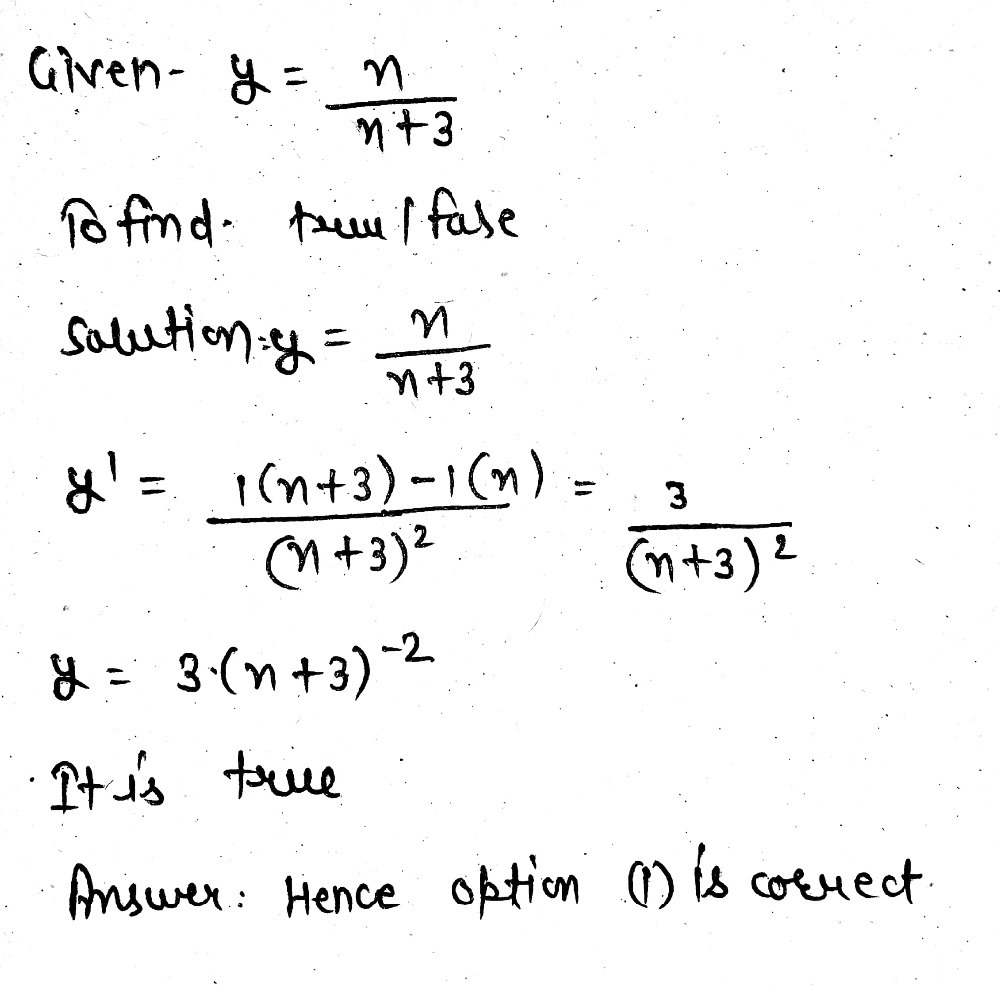 Given- y = n/n+3
To find- true/fase
Solution:- y = n/n+3
y' = 1(n+3)-1(n)/(n+3)² = 3/(n+3)²
y = 3·(n+3)⁻²
It is true
Answer: Hence option (1) is correct.